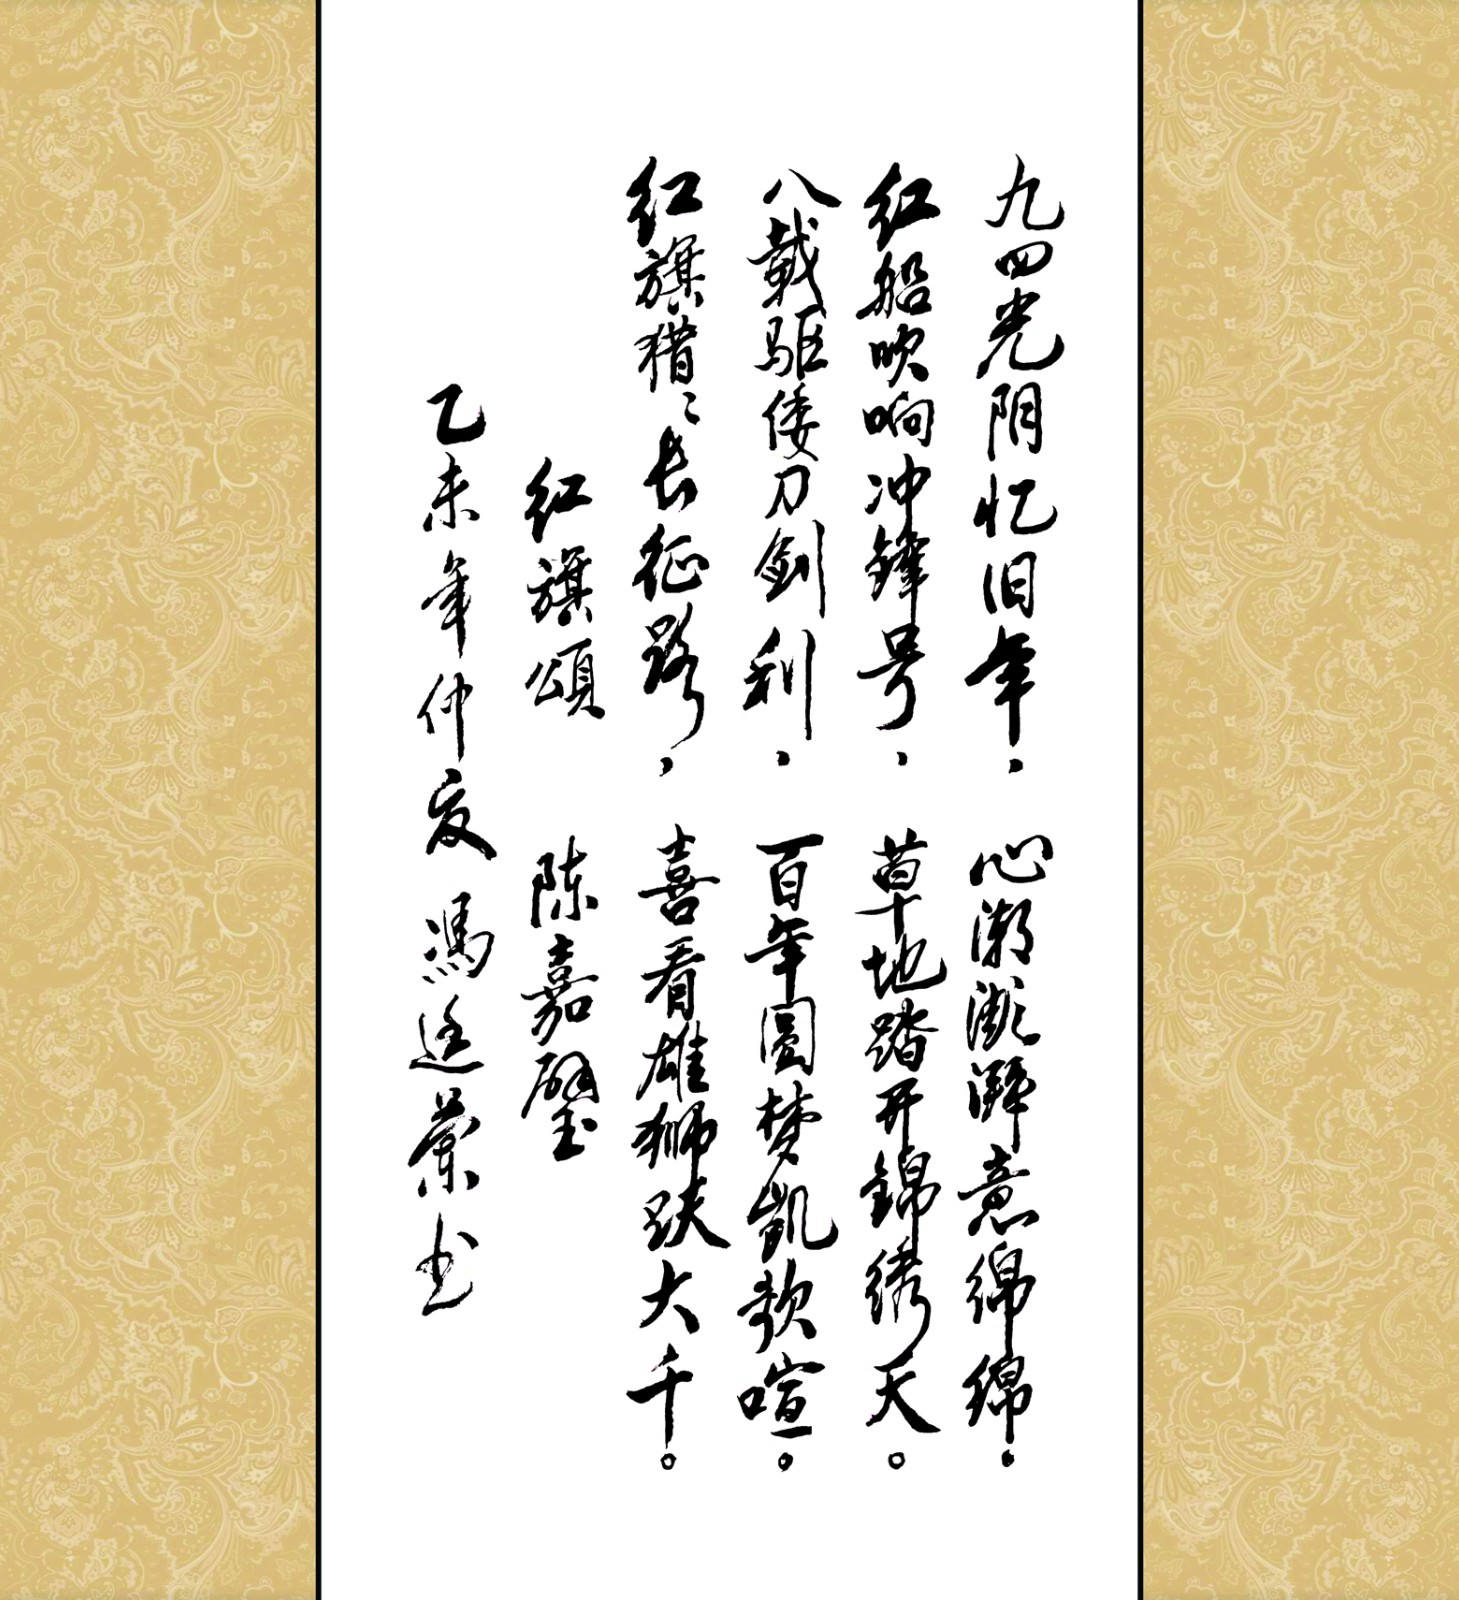 九四光阴忆旧年，心潮澎湃意绵绵。
红船吹响冲锋号，草地踏开锦绣天。
八载驱倭刀剑利，百年圆梦凯歌喧。
红旗猎猎长征路，喜看雄狮跃大千。
红旗頌 陈嘉璧
乙未年仲夏 馮廷蘭书